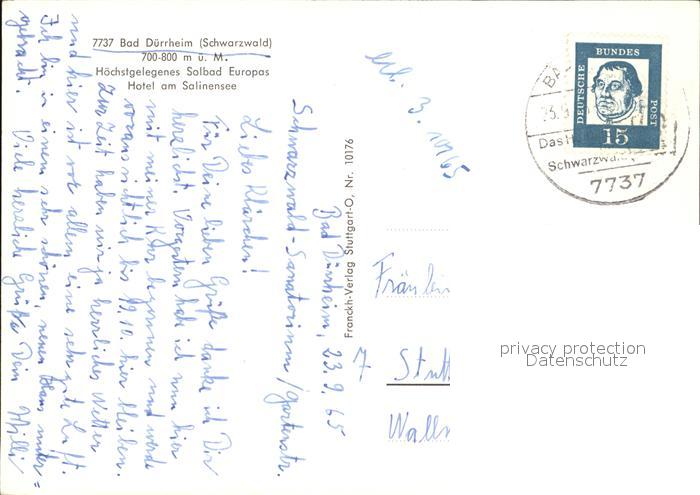 7737 Bad Dürrheim (Schwarzwald)
700-800 m ü. M.
Höchstgelegenes Solbad Europas
Hotel am Salinensee
Bad Dürrheim, 23.9.65
Schwarzwald-Sanatorium/Gartenstr.
Liebes Klärchen!
Für Deine lieben Grüße danke ich Dir
herzlichst. Vorgestern habe ich nun hier
mit meiner Kur begonnen und werde
voraussichtlich bis 19.10. hier bleiben.
Zur Zeit haben wir ja herrliches Wetter
und hier ist vor allem eine sehr gute Luft.
Ich bin in einem sehr schönen, neuen Haus unter=
gebracht. Viele herzliche Grüße Dein Willi
Franckh-Verlag Stuttgart-O, Nr. 10176
3. 10/65
DEUTSCHE
BUNDES
POST
15
BA
23.9
Das H
Schwarzwald
7737
Fräulein
7 Stutt
Walln
privacy protection
Datenschutz